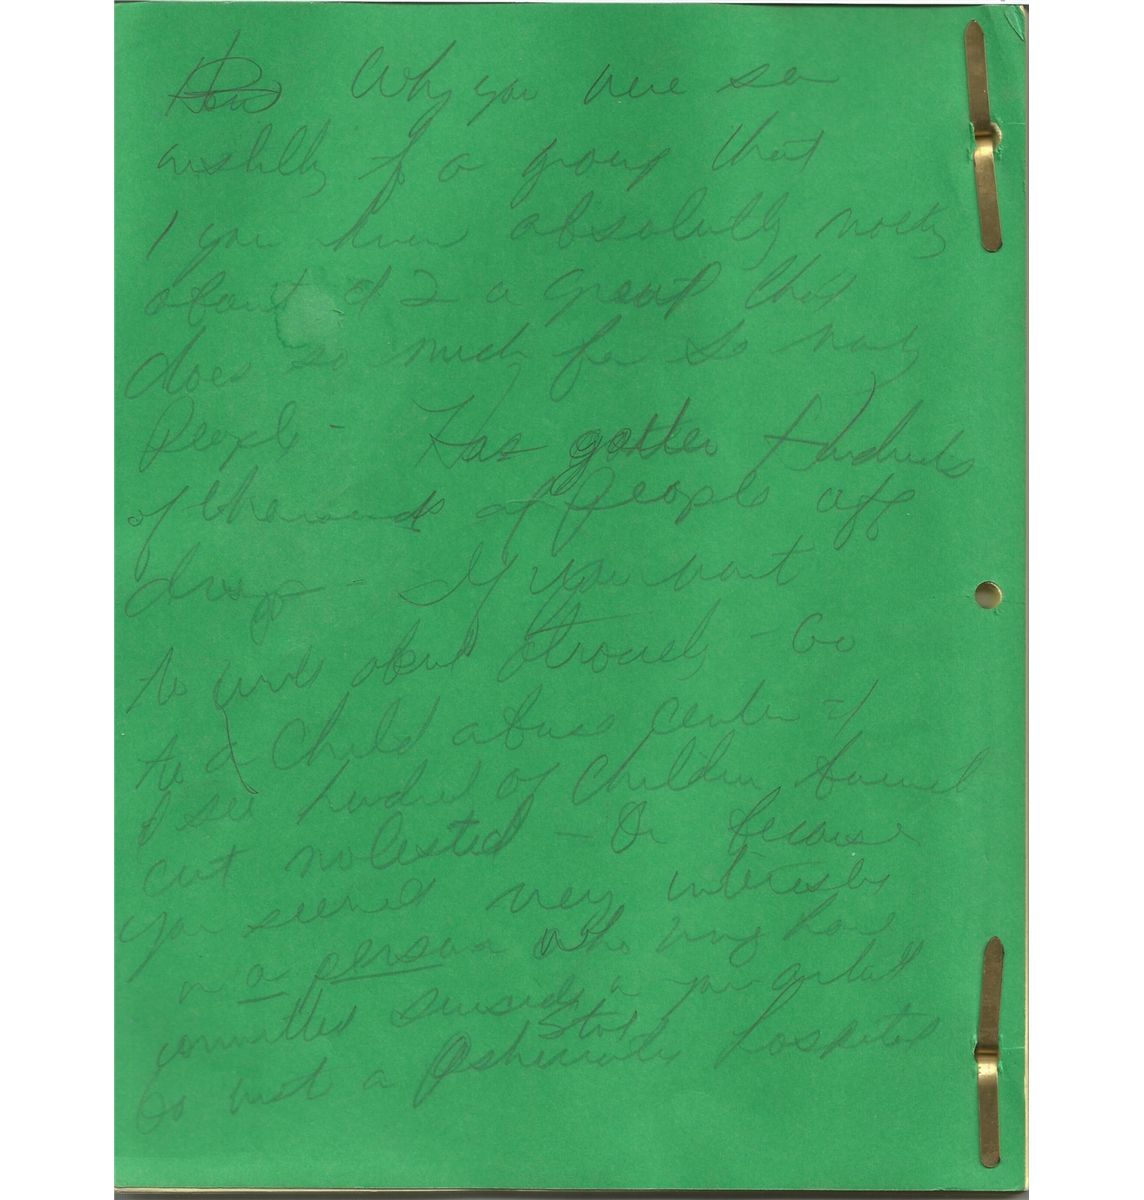 Why you were so
of a group that
1 you know absolutely
about & 2 a group that
does so much for so many
People - Has gotten Hundreds
of thousands of People off
drugs - If you want
to write about atrocity - Go
to a child abuse center - &
& see hundred of children burned
cut molested - Or because
you seemed very
in a person who may have
committed suicide in your
Go visit a State hospital